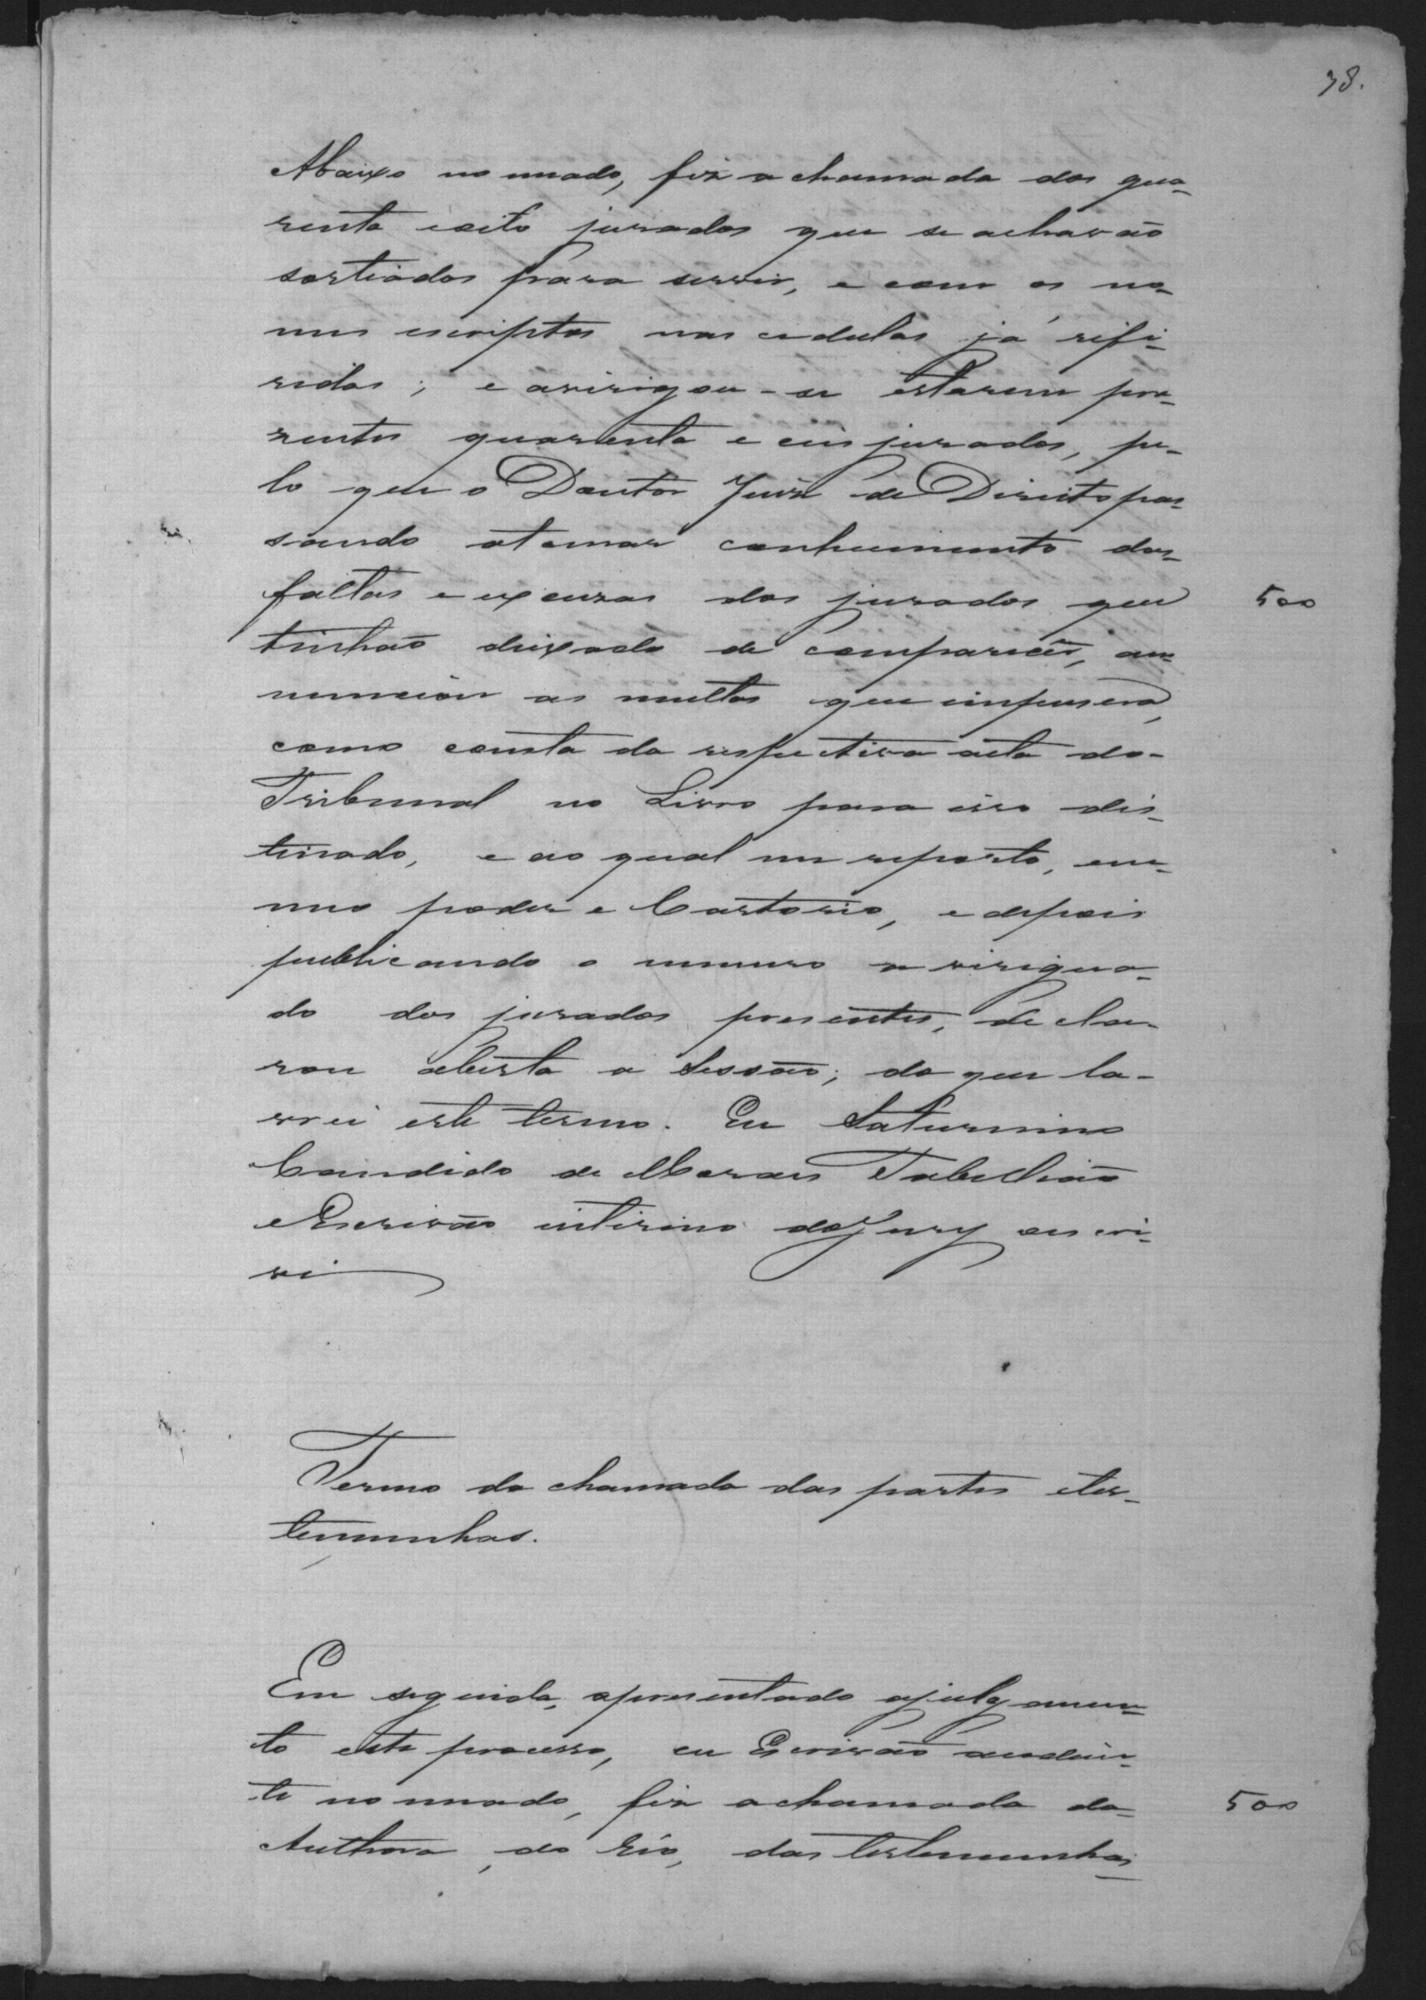 38.
Abaixo nomeado, fiz a chamada dos qua-
renta e oito jurados que se achavão
sorteados para servir, e com os no-
mes escriptos nas cedulas já refe-
ridas; e averigou-se estarem pre-
zentes quarenta e seis jurados, pe-
lo que o Doutor Juiz de Direito pas-
sando a tomar conhecimento das
faltas e excuzas dos jurados que
500
tinhão deixado de comparecer, an-
nunciou as multas que impusera,
como consta da respectiva acta do
Tribunal no Livro para isso des-
tinado, e ao qual me reporto, em
meo poder e Cartorio, e depois
publicando o numero averigua-
do dos jurados presentes, decla-
rou aberta a Sessão; do que la-
vrei este termo. Eu Saturnino
Candido de Moraes Tabellião
e Escrivão interino do Jury escre-
vi
Termo da chamada das partes e tes-
temunhas.
Em seguida, apresentado a julgamen-
to este processo, eu Escrivão adian-
te nomeado, fiz a chamada da
500
Authora, do Réo, das testemunhas